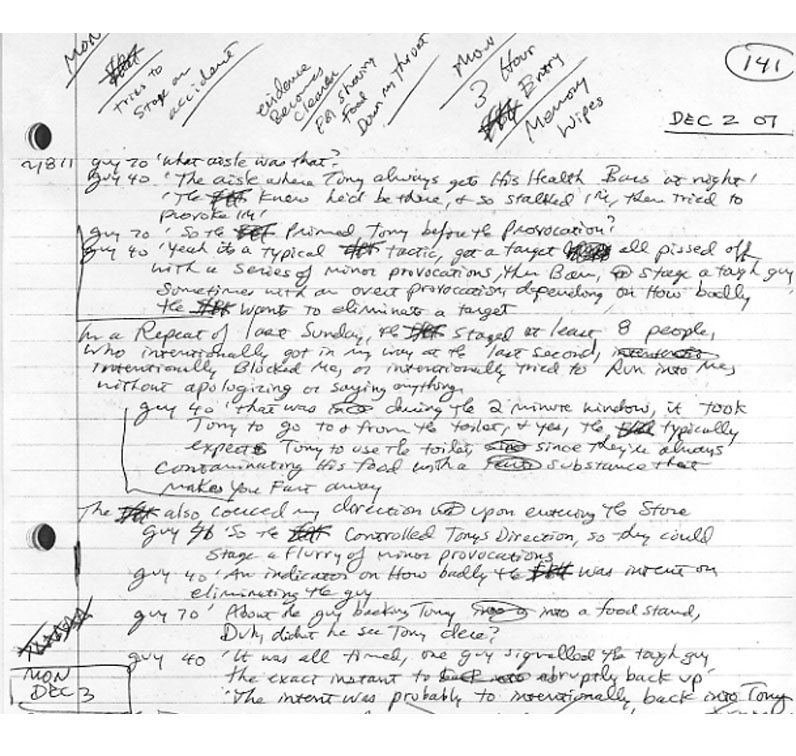 MON
tries to
Stage an
accident
evidence
Becomes
Clearer
shoving
Food
Down my throat
MON
3 Hour
Entry
Memory
Wipes
141
DEC 2 07
guy 20 'what aisle was that?
guy 40 'The aisle where Tony always gets His Health Bars at night'
'The knew he'd be there, & so stalked him, then tried to
provoke him'
guy 20 'So the Primed Tony before the Provocation?
guy 40 'Yeah its a typical tactic, get a target all pissed off,
with a series of minor provocations, then Bam, stage a tough guy
Sometimes with an overt provocation, depending on How badly
the wants to eliminate a target
In a Repeat of last Sunday, the staged at least 8 people,
who intentionally got in my way at the last second,
intentionally Blocked Me, or intentionally tried to Run into Me,
without apologizing or saying anything.
guy 40 'that was during the 2 minute window, it took
Tony to go to & from the toilet, & yes, the typically
expects Tony to use the toilet, since they're always
Contaminating His food with a substance that
makes you Fart away
The also my direction upon entering the Store
guy 'So the Controlled Tonys Direction, so they could
Stage a flurry of minor provocations
guy 40 'An indicator on How badly the was intent on
eliminating the guy
guy 20 'About the guy backing Tony into a food stand,
Duh, didnt he see Tony there?
MON
DEC 3
guy 40 'It was all timed, one guy signalled the tough guy
the exact instant to abruptly back up'
'The intent was probably to intentionally back into Tony